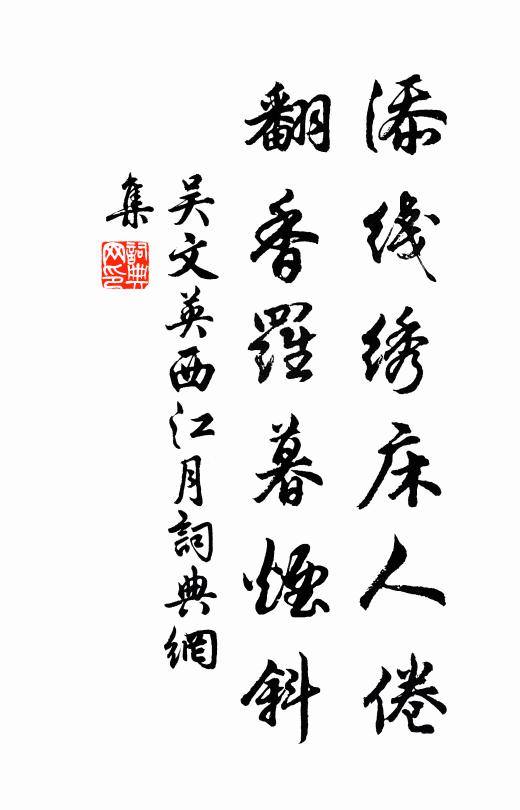 添线绣床人倦
翻香羅暮煙斜
吴文英西江月詞典網
集
詞典网印